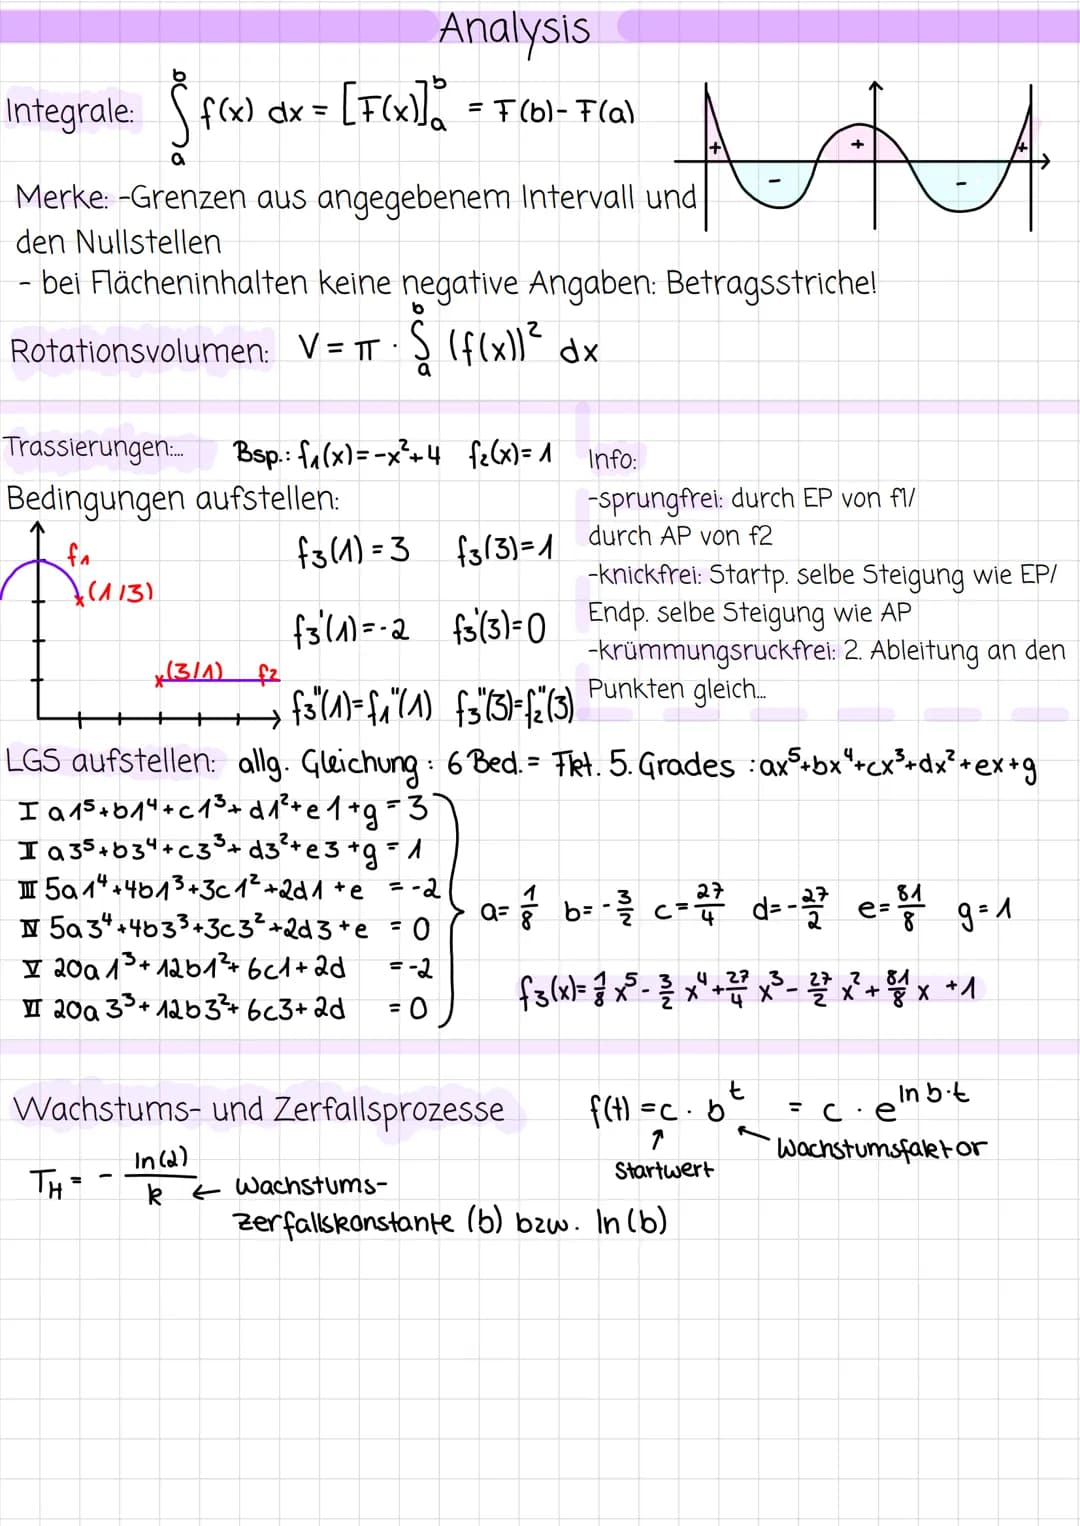 Analysis
Integrale: ∫ₐᵇ f(x) dx = [F(x)]ₐᵇ = F(b)-F(a)
+ - + - +
Merke: -Grenzen aus angegebenem Intervall und
den Nullstellen
- bei Flächeninhalten keine negative Angaben: Betragsstriche!
Rotationsvolumen: V = π · ∫ₐᵇ (f(x))² dx
Trassierungen:... Bsp.: f₁(x)=-x²+4 f₂(x)=1
Bedingungen aufstellen:
f₁
(1/3)
(3/1) f₂
f₃(1)=3 f₃(3)=1
f₃'(1)=-2 f₃'(3)=0
f₃"(1)=f₁"(1) f₃"(3)=f₂"(3)
Info:
-sprungfrei: durch EP von f1/
durch AP von f2
-knickfrei: Startp. selbe Steigung wie EP/
Endp. selbe Steigung wie AP
-krümmungsruckfrei: 2. Ableitung an den
Punkten gleich...
LGS aufstellen: allg. Gleichung: 6 Bed. = Fkt. 5. Grades: ax⁵+bx⁴+cx³+dx²+ex+g
I a1⁵+b1⁴+c1³+d1²+e1+g = 3
II a3⁵+b3⁴+c3³+d3²+e3+g = 1
III 5a1⁴+4b1³+3c1²+2d1+e = -2
IV 5a3⁴+4b3³+3c3²+2d3+e = 0
V 20a1³+12b1²+6c1+2d = -2
VI 20a3³+12b3²+6c3+2d = 0
a= 1/8 b= -3/2 c= 27/4 d= -27/2 e= 81/8 g=1
f₃(x)= 1/8 x⁵ - 3/2 x⁴ + 27/4 x³ - 27/2 x² + 81/8 x +1
Wachstums- und Zerfallsprozesse
f(t) = c · bᵗ = c · e^ln b·t
Startwert
Wachstumsfaktor
T_H = - ln(2)/k ← Wachstums-
zerfallskonstante (b) bzw. ln(b)